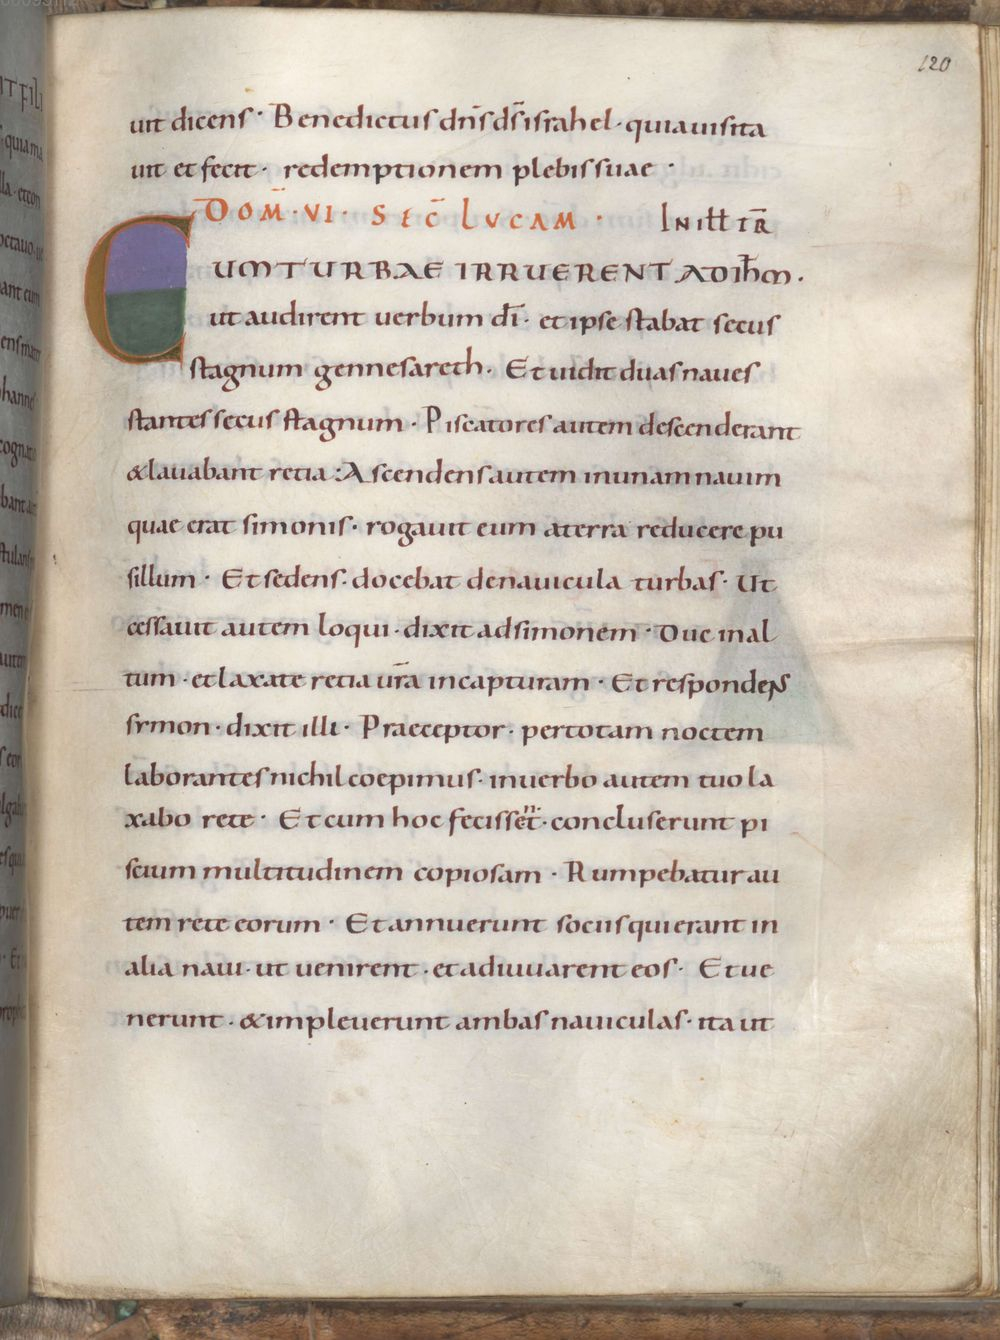 120
uit dicens · Benedictus dñs ds̄ israhel · quia uisita
uit et fecit · redemptionem plebis suae ·
DOM̄ · VI · SEC̄ LVCAM · IN ILL̄ T̄R̄
CUM TURBAE IRRUERENT AD IHM̄ ·
ut audirent uerbum dī · et ipse stabat secus
stagnum gennesareth · Et uidit duas naues
stantes secus stagnum · Piscatores autem descenderant
& lauabant retia : Ascendens autem in unam nauim
quae erat simonis · rogauit eum a terra reducere pu
sillum · Et sedens · docebat de nauicula turbas · Ut
cessauit autem loqui · dixit ad simonem · Duc in al
tum · et laxate retia ur̄a in capturam · Et respondens
symon · dixit illi · Praeceptor · per totam noctem
laborantes nichil coepimus · in uerbo autem tuo la
xabo rete · Et cum hoc fecisset̄ · concluserunt pi
scium multitudinem copiosam · Rumpebatur au
tem rete eorum · Et annuerunt sociis qui erant in
alia naui · ut uenirent · et adiuuarent eos · Et ue
nerunt · & impleuerunt ambas nauiculas · ita ut